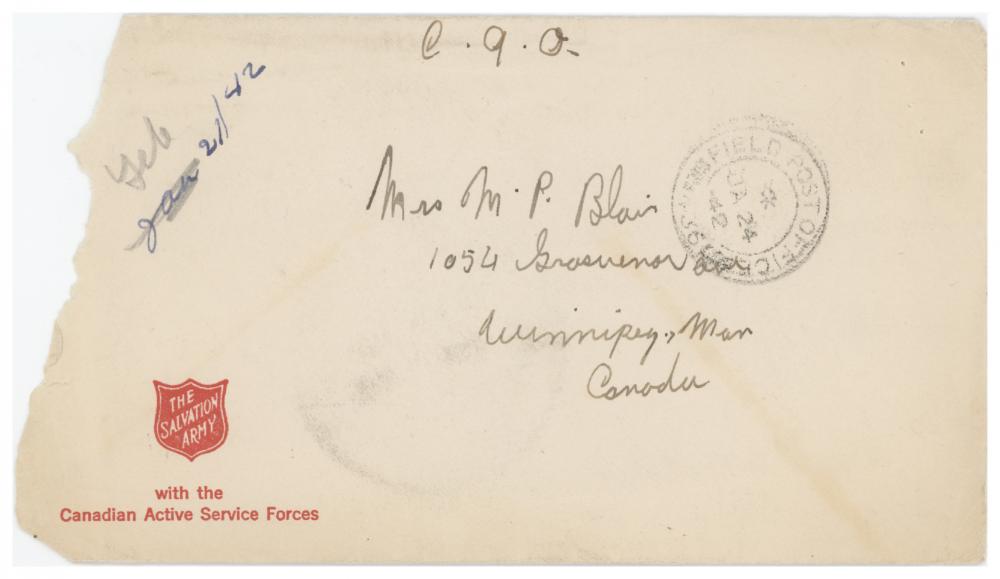 C. 9. O-
Feb
Jan 21/42
Mrs M. P. Blair
1054 Grosvenor ave
Winnipeg, Man
Canada
FIELD POST OFFICE
JA 24
42
THE
SALVATION
ARMY
with the
Canadian Active Service Forces